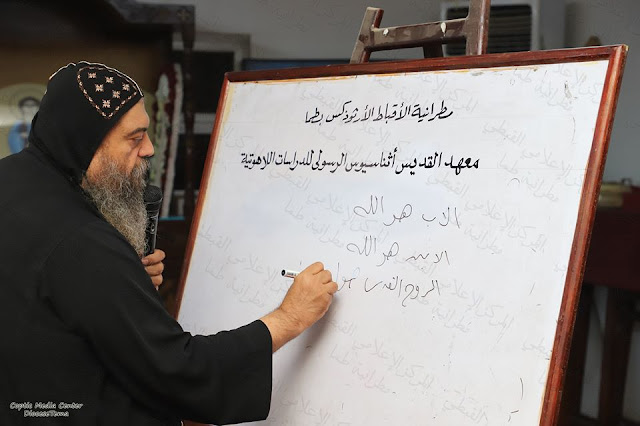 مطرانية الأقباط الأرثوذكس بطما
معهد القديس أثناسيوس الرسولى للدراسات اللاهوتية
الاب هو الله
الابن هو الله
الروح القدس هو
Coptic Media Center
DioceseTema